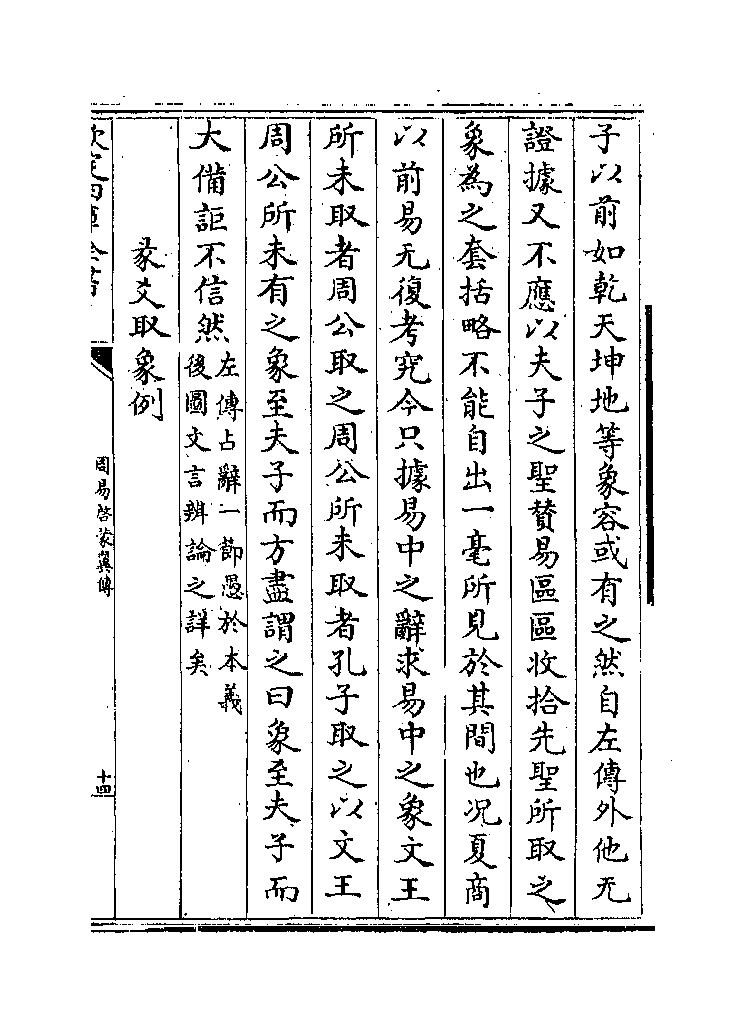 子以前如乾天坤地等象容或有之然自左傳外他无
證據又不應以夫子之聖賛易區區收拾先聖所取之
象為之套括略不能自出一毫所見於其間也况夏商
以前易无復考究今只據易中之辭求易中之象文王
所未取者周公取之周公所未取者孔子取之以文王
周公所未有之象至夫子而方盡謂之曰象至夫子而
大備詎不信然
左傳占辭一節愚於本義
後圖文言辨論之詳矣
彖爻取象例
欽定四庫全書
周易啓蒙翼傳
十四